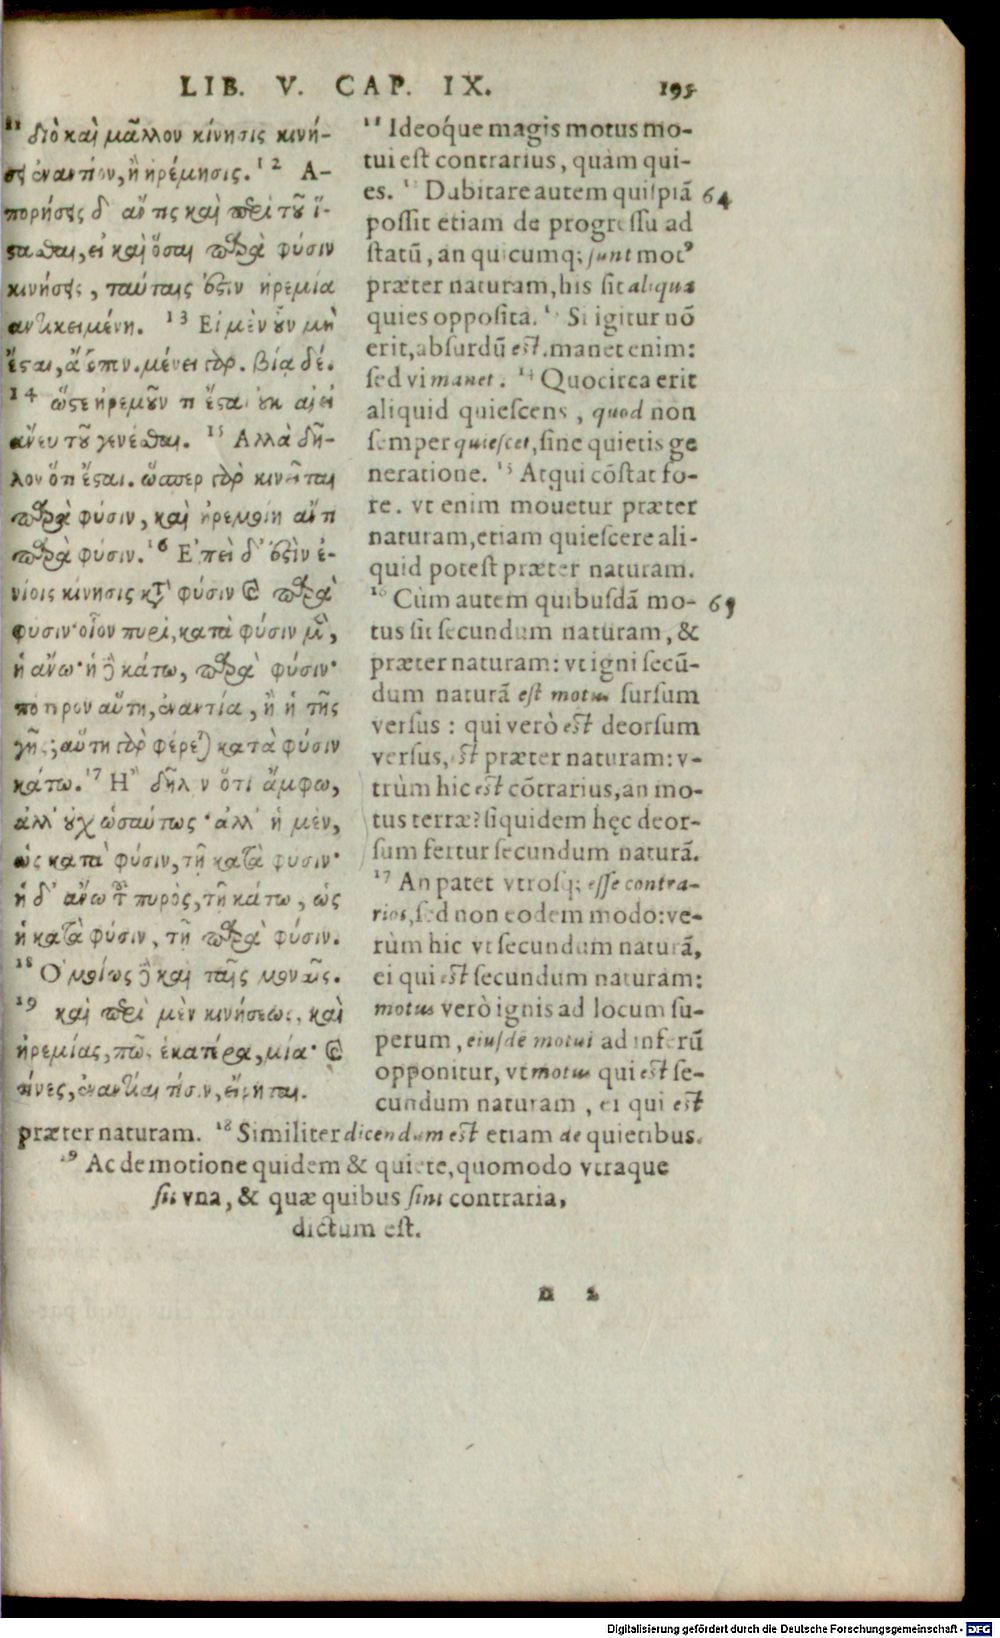 LIB. V. CAP. IX. 195
11 διὸ καὶ μᾶλλον κίνησις κινή-
σει ἐναντίον, ἢ ἠρέμησις. 12 Α-
πορήσειε δ' ἄν τις καὶ περὶ τοῦ ἵ-
στασθαι, εἰ καὶ ὅσαι παρὰ φύσιν
κινήσεις, ταύταις ἐστὶν ἠρεμία
ἀντικειμένη. 13 Εἰ μὲν οὖν μὴ
ἔσται, ἄτοπον. μένει γὰρ. βίᾳ δέ.
14 ὥστε ἠρεμοῦν τι ἔσται οὐκ ἀεὶ
ἄνευ τοῦ γενέσθαι. 15 Ἀλλὰ δῆ-
λον ὅτι ἔσται. ὥσπερ γὰρ κινεῖται
παρὰ φύσιν, καὶ ἠρεμοίη ἄν τι
παρὰ φύσιν. 16 Ἐπεὶ δ' ἐστὶν ἐ-
νίοις κίνησις κατὰ φύσιν καὶ παρὰ
φύσιν· οἷον πυρὶ, κατὰ φύσιν μὲν,
ἡ ἄνω· ἡ δὲ κάτω, παρὰ φύσιν·
πότερον αὕτη, ἐναντία, ἢ ἡ τῆς
γῆς; αὕτη γὰρ φέρεται κατὰ φύσιν
κάτω. 17 Ἢ δῆλον ὅτι ἄμφω,
ἀλλ' οὐχ ὡσαύτως· ἀλλ' ἡ μὲν,
ὡς κατὰ φύσιν, τῇ κατὰ φύσιν·
ἡ δ' ἄνω τοῦ πυρὸς, τῇ κάτω, ὡς
ἡ κατὰ φύσιν, τῇ παρὰ φύσιν.
18 Ὁμοίως δὲ καὶ ταῖς μοναῖς.
19 καὶ περὶ μὲν κινήσεως, καὶ
ἠρεμίας, πῶς ἑκατέρα, μία· καὶ
τίνες, ἐναντίαι τίσιν, εἴρηται.
11 Ideóque magis motus mo-
tui est contrarius, quàm qui-
es. 12 Dubitare autem quispiã 64
possit etiam de progressu ad
statũ, an quicumq; sunt mot⁹
præter naturam, his sit aliqua
quies opposita. 13 Si igitur nõ
erit, absurdũ est. manet enim:
sed vi manet. 14 Quocirca erit
aliquid quiescens, quod non
semper quiescet, sine quietis ge
neratione. 15 Atqui cõstat fo-
re. vt enim mouetur præter
naturam, etiam quiescere ali-
quid potest præter naturam.
16 Cùm autem quibusdã mo- 65
tus sit secundum naturam, &
præter naturam: vt igni secũ-
dum naturã est motus sursum
versus: qui verò est deorsum
versus, est præter naturam: v-
trùm hic est cõtrarius, an mo-
tus terræ? siquidem hęc deor-
sum fertur secundum naturã.
17 An patet vtrosq; esse contra-
rios, sed non eodem modo: ve-
rùm hic vt secundum naturã,
ei qui est secundum naturam:
motus verò ignis ad locum su-
perum, eiusdẽ motui ad inferũ
opponitur, vt motus qui est se-
cundum naturam, ei qui est
præter naturam. 18 Similiter dicendum est etiam de quietibus.
19 Ac de motione quidem & quiete, quomodo vtraque
sit vna, & quæ quibus sint contraria,
dictum est.
n 2
Digitalisierung gefördert durch die Deutsche Forschungsgemeinschaft - DFG